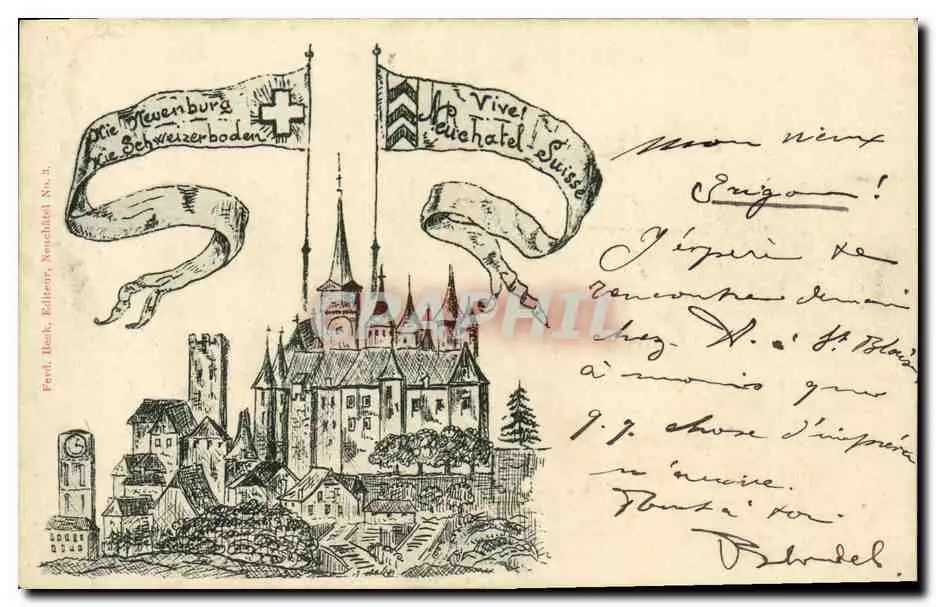 Hie Neuenburg
Hie Schweizerboden
Vive!
Neuchatel-Suisse
Ferd. Beck, Editeur, Neuchâtel No. 3.
CPAPHIL
mon vieux
J'espère te
rencontrer demain
chez A. à St Blaise
à moins que
q.q. chose d'imprévu
n'arrive.
Tout à toi
Blondel